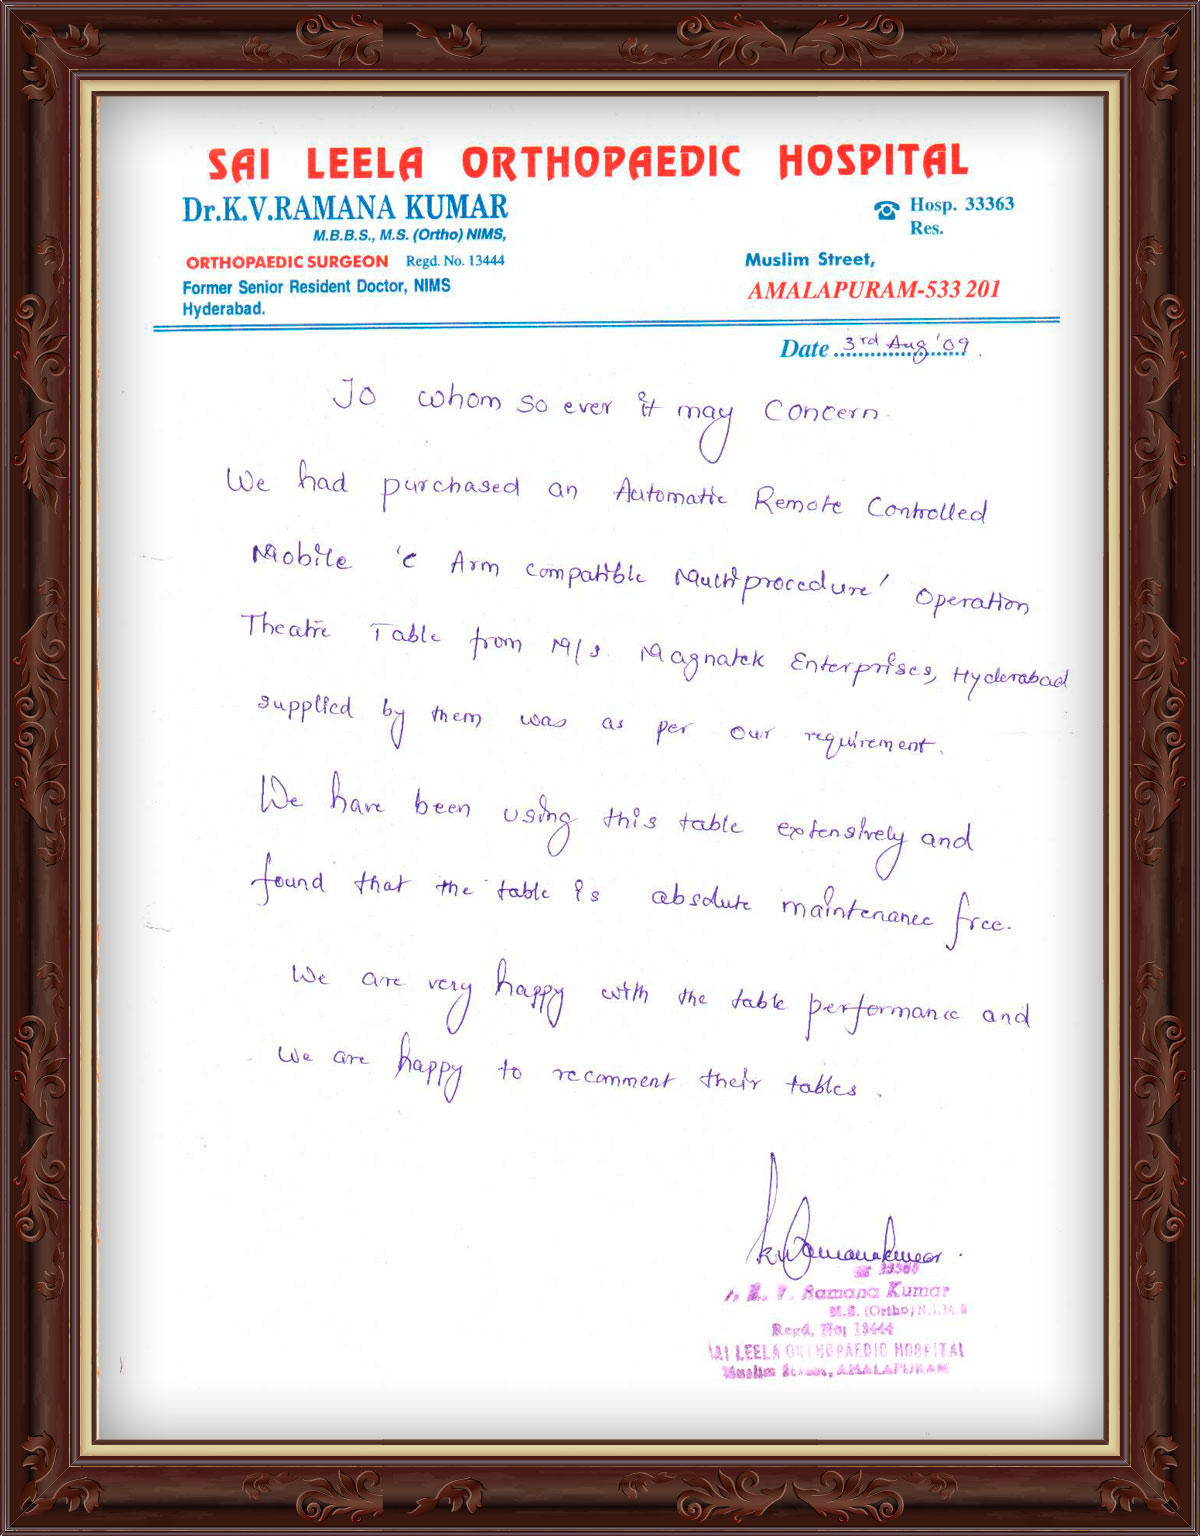 SAI LEELA ORTHOPAEDIC HOSPITAL
Dr.K.V.RAMANA KUMAR
M.B.B.S., M.S. (Ortho) NIMS,
ORTHOPAEDIC SURGEON Regd. No. 13444
Former Senior Resident Doctor, NIMS
Hyderabad.
☎ Hosp. 33363
Res.
Muslim Street,
AMALAPURAM-533 201
Date 3rd Aug '09.
To whom so ever it may Concern.
We had purchased an Automatic Remote Controlled
Mobile 'C Arm compatible Multiprocedure' Operation
Theatre Table from M/s. Magnatek Enterprises, Hyderabad
supplied by them was as per our requirement.
We have been using this table extensively and
found that the table is absolute maintenance free.
We are very happy with the table performance and
we are happy to recomment their tables.
KVRamanakumar.
K. V. Ramana Kumar
M.S. (Ortho) N.I.M.S
Regd. No: 13444
SAI LEELA ORTHOPAEDIC HOSPITAL
Muslim Street, AMALAPURAM